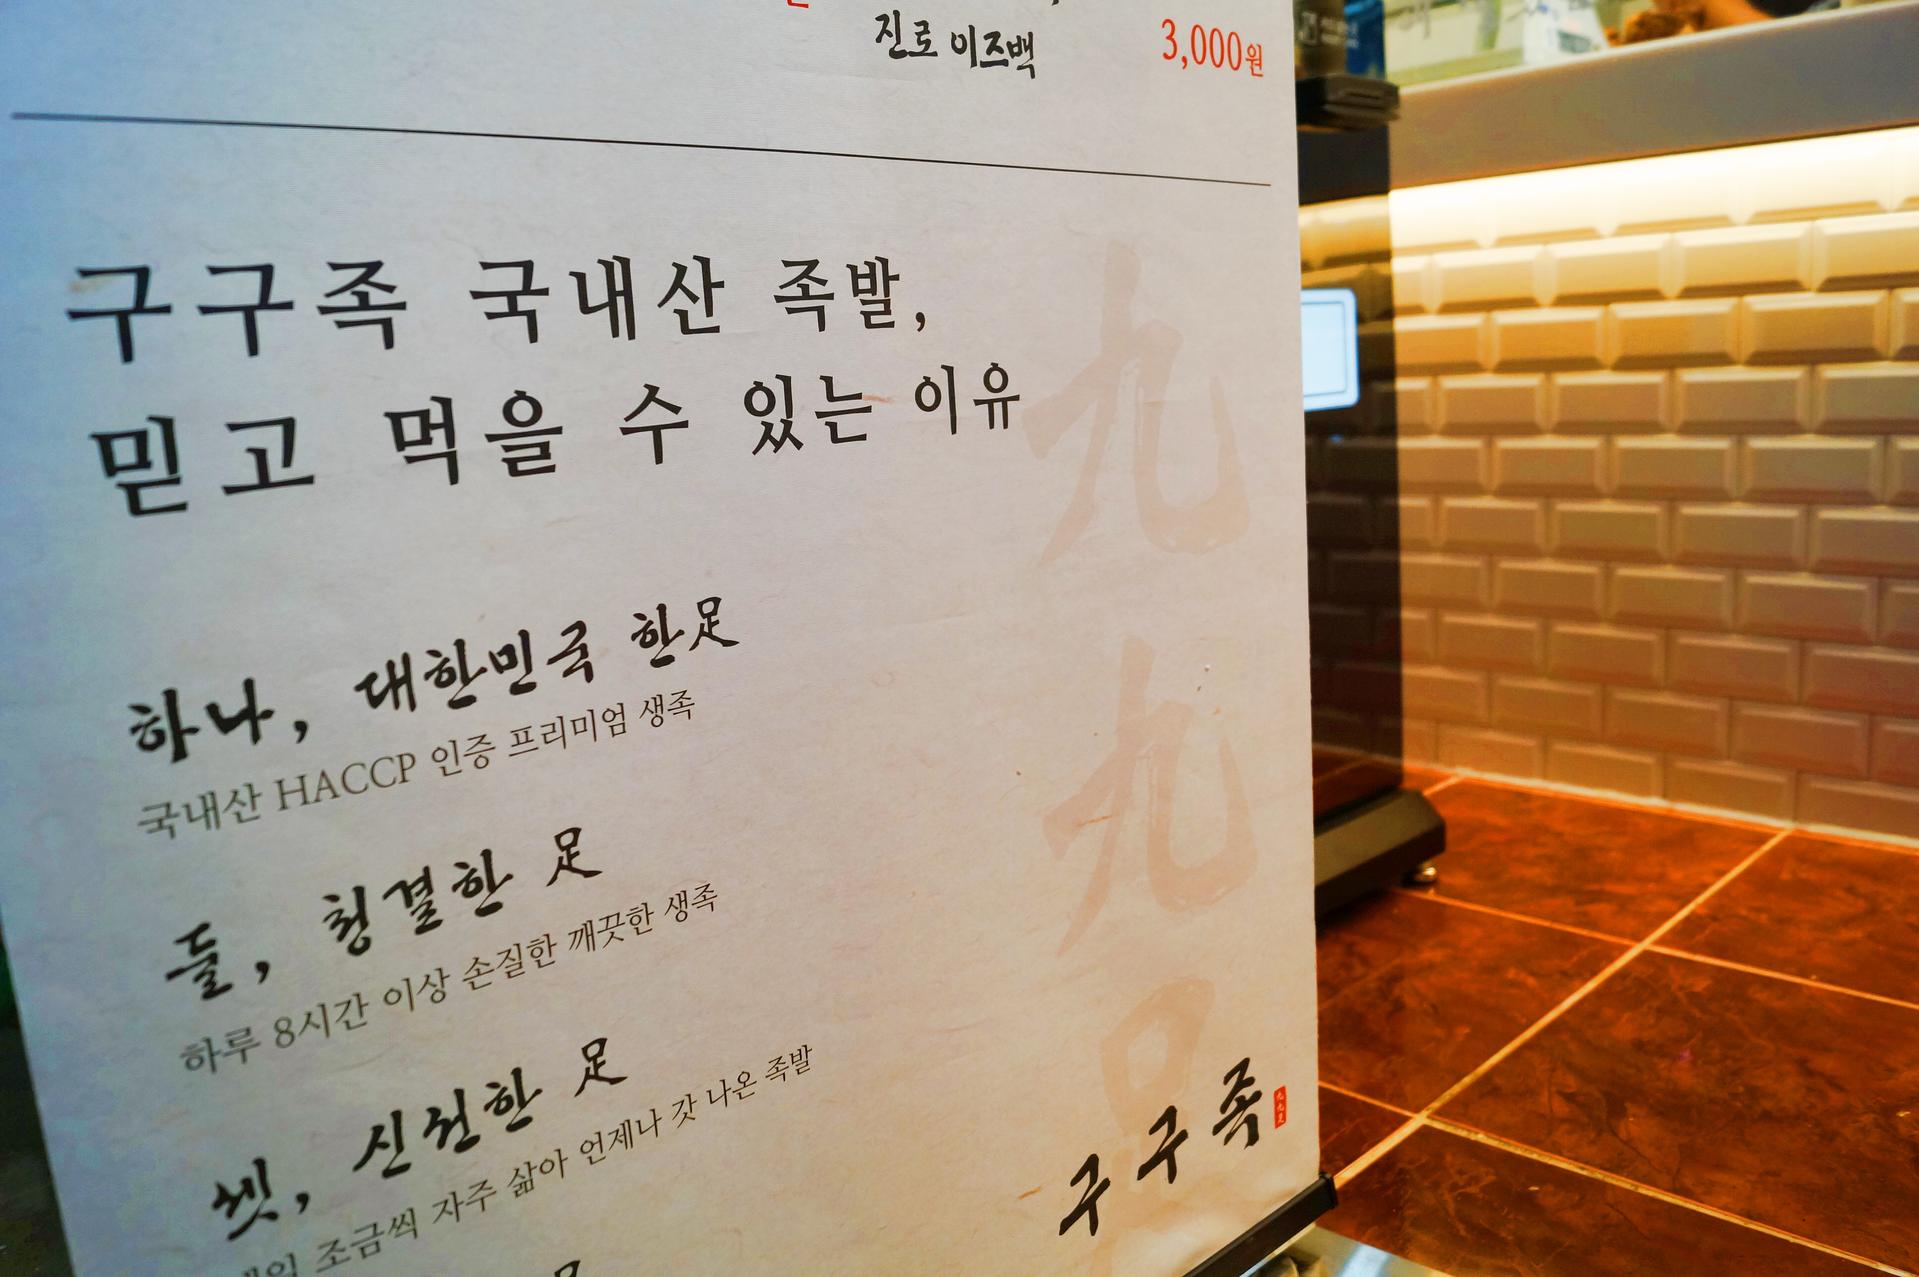 진로 이즈백 3,000원
구구족 국내산 족발,
믿고 먹을 수 있는 이유
하나, 대한민국 한足
국내산 HACCP 인증 프리미엄 생족
둘, 청결한 足
하루 8시간 이상 손질한 깨끗한 생족
셋, 신선한 足
조금씩 자주 삶아 언제나 갓 나온 족발
九
九
足
구구족
九九足